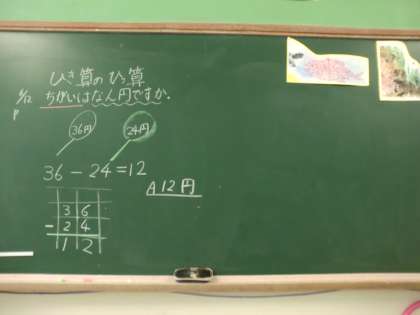 ひき算のひっ算
6/12
ちがいはなん円ですか。
P
36円
24円
36-24=12
A 12円
36
-24
12